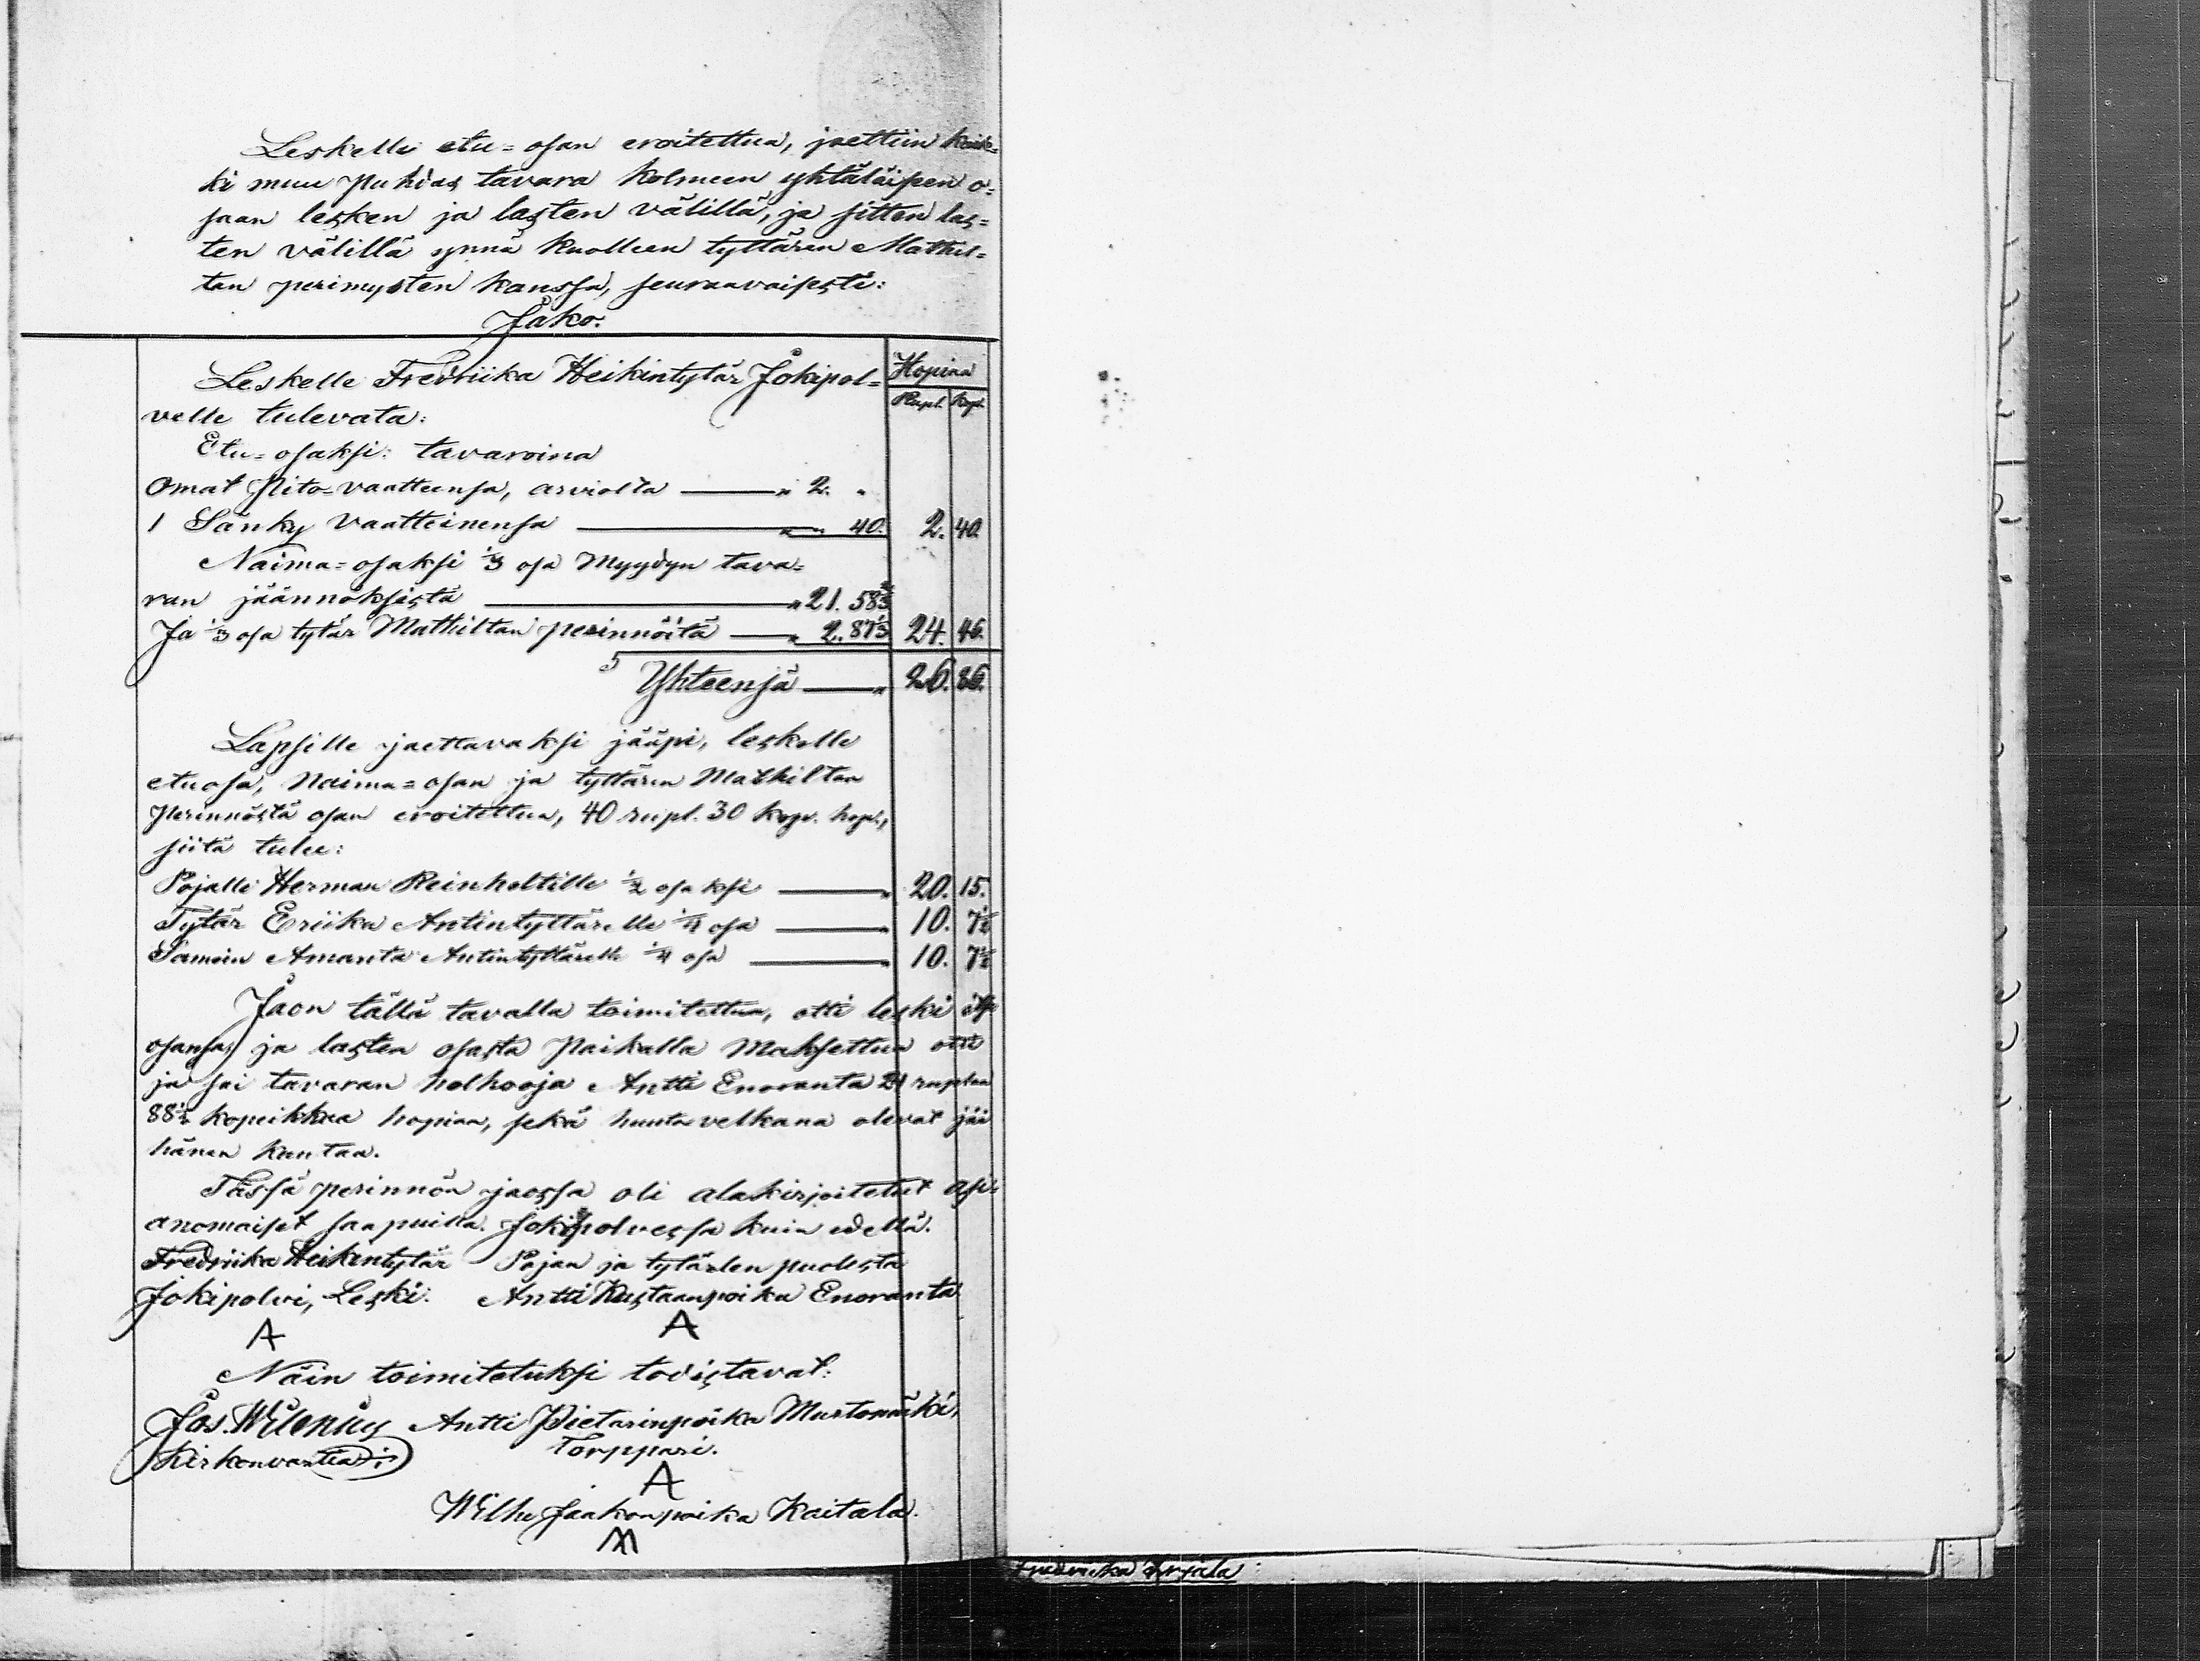 Leskelle etu=osan eroitettua, jaettiin kaik=
ki muu puhdas tavara kolmeen yhtäläisen o=
saan lesken ja lasten välillä, ja sitten las=
ten välillä ynnä kuolleen tyttären Mathil=
tan perimysten kanssa, seuraavaisesti:
Jako.
Hopiaa
Rupl. Kop.
Leskelle Fredriika Heikintytär Jokipol=
velle tulevata:
Etu=osaksi: tavaroina
Omat pito=vaatteensa, arviolta — „ 2. „
1 Sänky vaatteinensa — „ „ 40. 2. 40.
Naima=osaksi 1/3 osa myydyn tava=
ran jäännöksistä — „ 21. 58 2/3
Ja 1/3 osa tytär Mathiltan perinnöitä — „ 2. 87 1/3 24. 46.
Yhteensä — „ 26. 86.
Lapsille jaettavaksi jääpi, leskelle
etuosa, naima=osan ja tyttären Mathiltan
perinnöstä osan eroitettua, 40 rupl. 30 kop. hop.,
siitä tulee:
Pojalle Herman Reinholtille 1/2 osaksi — „ 20. 15.
Tytär Eriika Antintyttärelle 1/4 osa — „ 10. 7 1/2
Samoin Amanta Antintyttärelle 1/4 osa — „ 10. 7 1/2
Jaon tällä tavalla toimitettua, otti leski
osansa, ja lasten osasta paikalla maksettua otti
ja sai tavaran holhooja Antti Enoranta 21 ruplaa
88 1/2 kopeikkaa hopiaa, sekä huuto velkana olevat jää
hänen kantaa.
Tässä perinnön jaossa oli alakirjoitetut asi=
anomaiset saapuilla. Jokipolvessa kuin edellä.
Fredriika Heikintytär Pojan ja tytärten puolesta
Jokipolvi, Leski. Antti Kustaanpoika Enoranta
A A
Näin toimitetuksi todistavat:
Jos. Wilenius Antti Pietarinpoika Murtomäki,
Kirkonvartia Torppari.
A
Wilhe Jaakonpoika Kaitala.
Fredriika